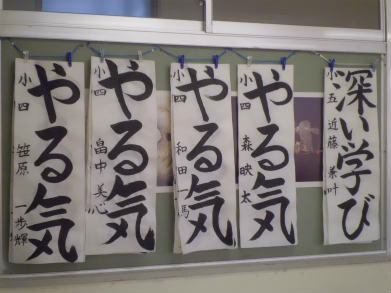 深い学び
小五 近藤 兼叶
やる気
小四 森 映太
やる気
小四 和田 一馬
やる気
小四 畠中 美心
やる気
小四 笹原 一歩輝